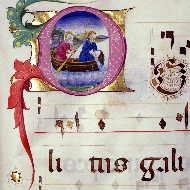 li tus gali